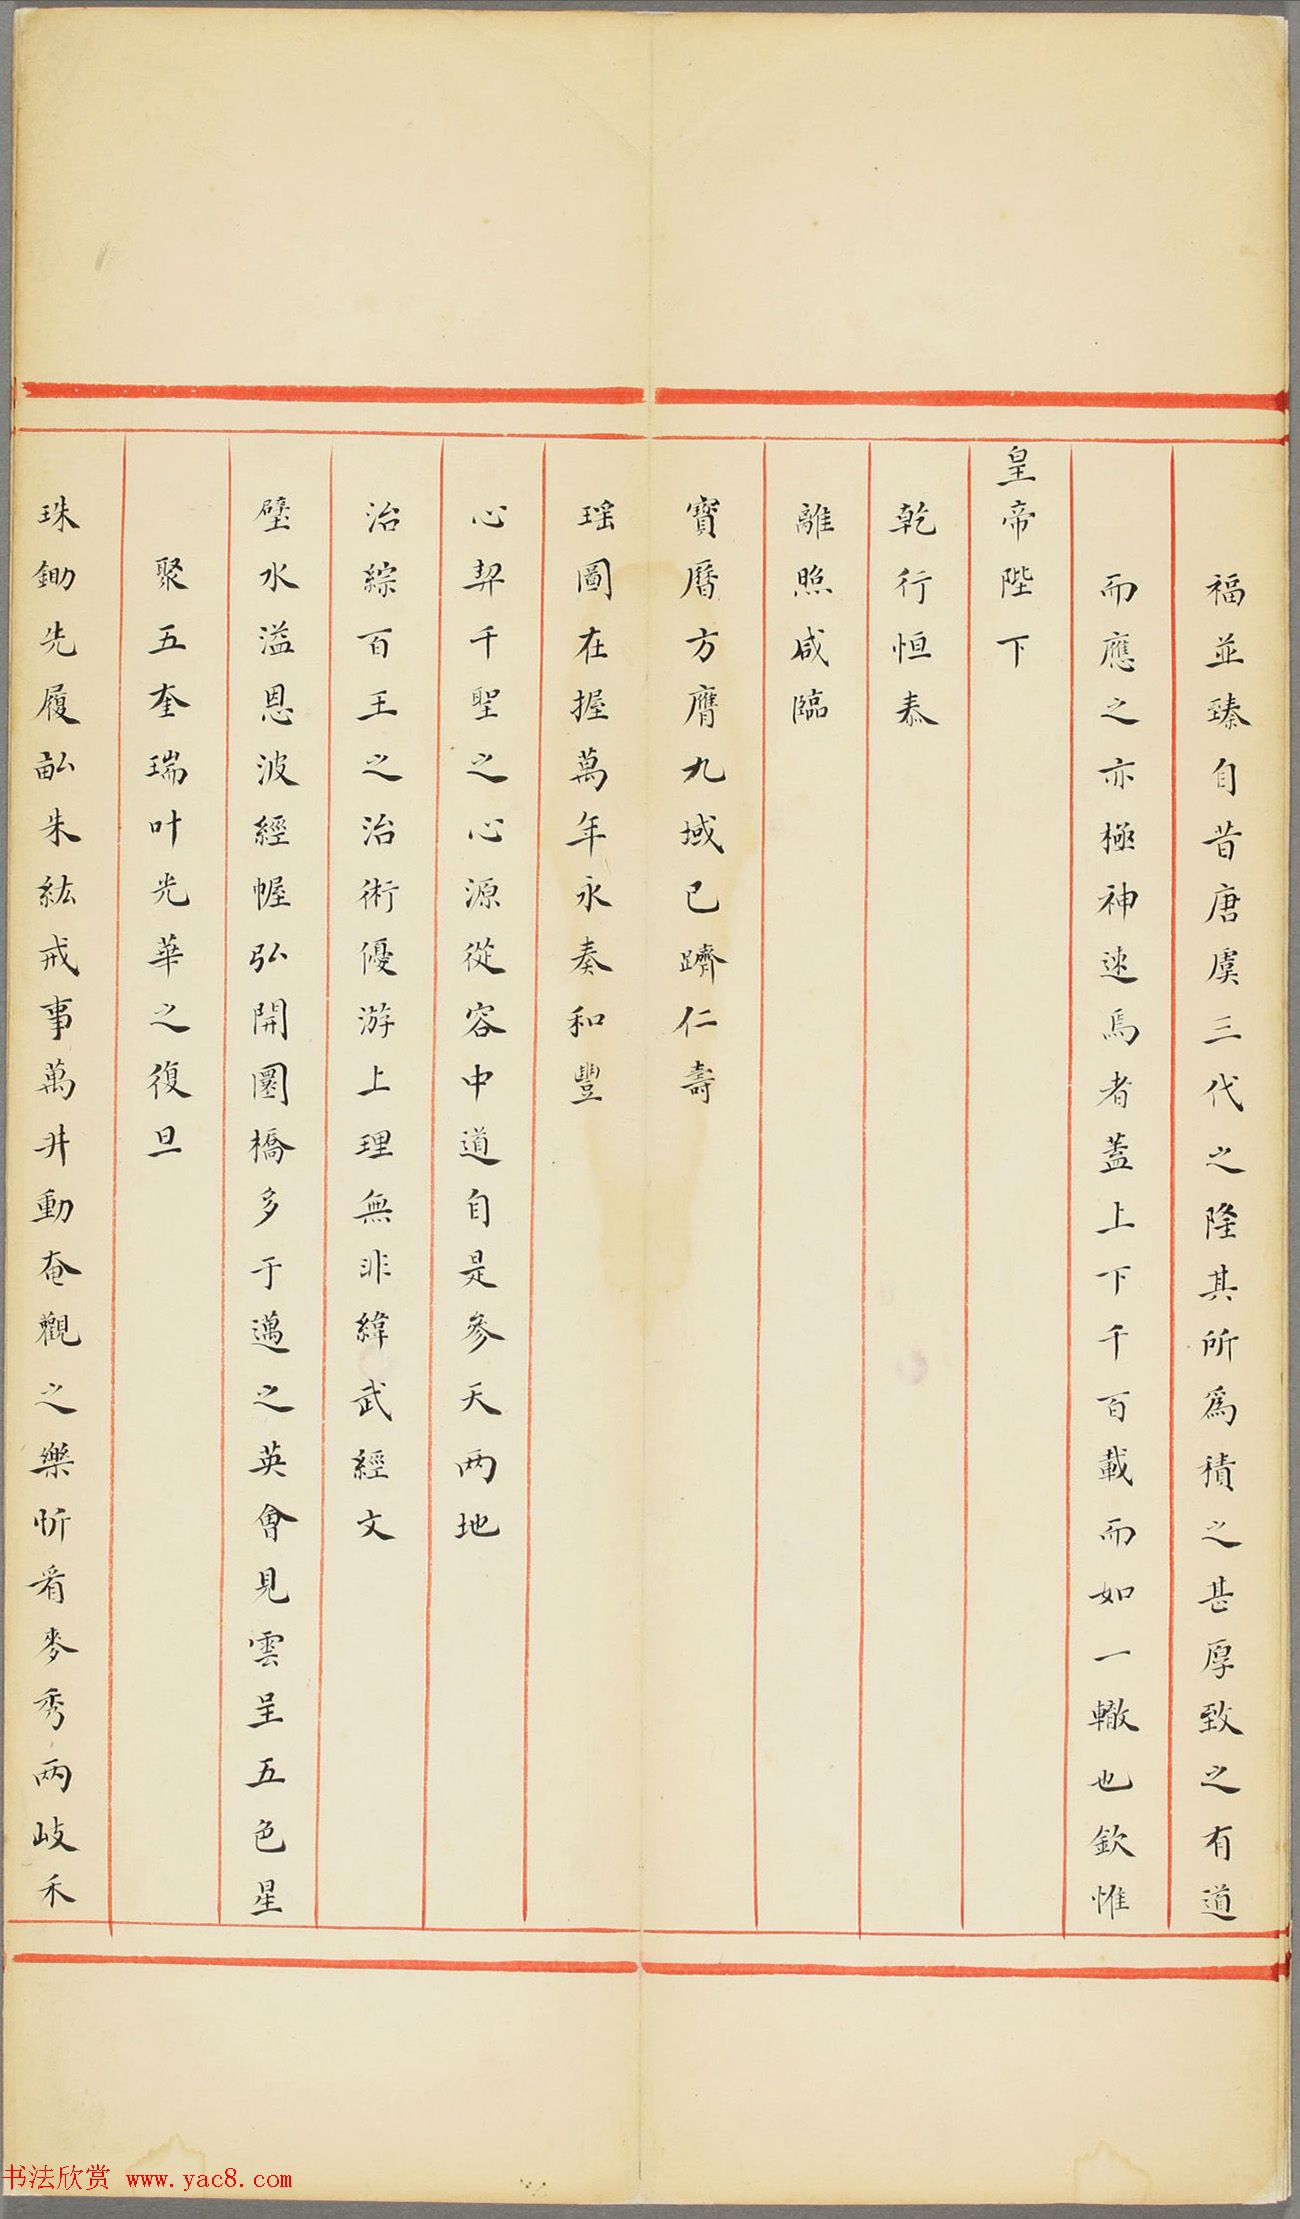 福並臻自昔唐虞三代之隆其所爲積之甚厚致之有道
而應之亦極神速焉者蓋上下千百載而如一轍也欽惟
皇帝陛下
乾行恒泰
離照咸臨
寶曆方膺九域已躋仁壽
瑶圖在握萬年永奏和豐
心契千聖之心源從容中道自是參天两地
治綜百王之治術優游上理無非緯武經文
璧水溢恩波經幄弘開圜橋多于邁之英會見雲呈五色星
聚五奎瑞叶光華之復旦
珠鋤先履畝朱紘戒事萬井動奄觀之樂忻看麥秀两岐禾
书法欣赏 www.yac8.com